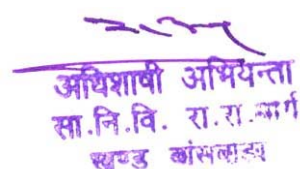 अधिशाषी अभियन्ता
सा.नि.वि. रा.रा.मार्ग
खण्ड बांसवाडा